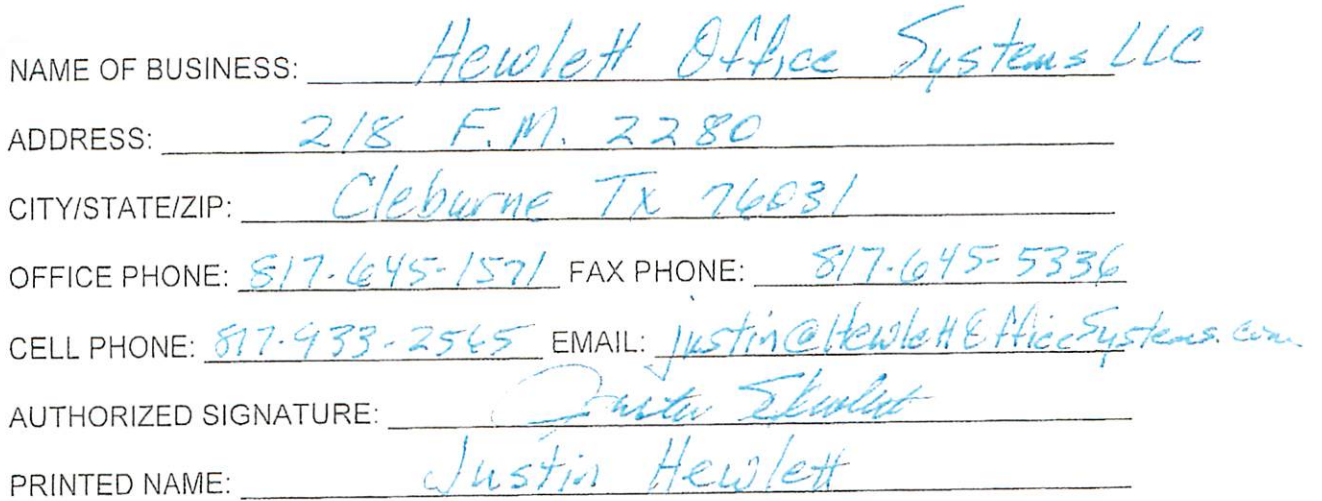 NAME OF BUSINESS: Hewlett Office Systems LLC
ADDRESS: 218 F.M. 2280
CITY/STATE/ZIP: Cleburne Tx 76031
OFFICE PHONE: 817-645-1571 FAX PHONE: 817-645-5336
CELL PHONE: 817-933-2565 EMAIL: justin@HewlettOfficeSystems.com
AUTHORIZED SIGNATURE: Justin Hewlett
PRINTED NAME: Justin Hewlett